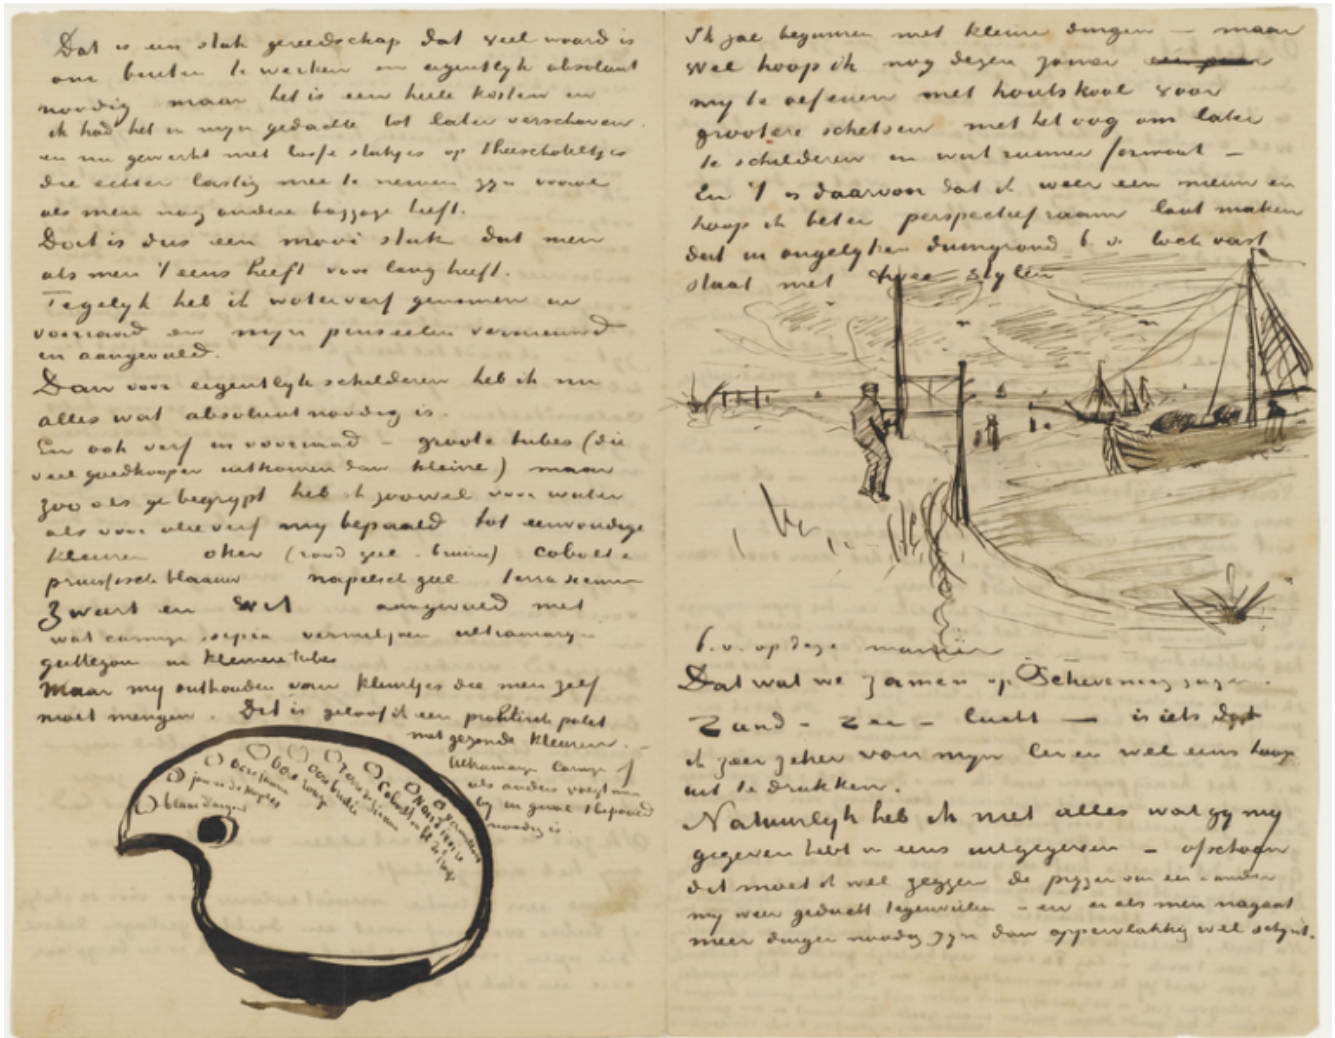 Dat is een stuk gereedschap dat veel waard is
om buiten te werken en eigentlyk absoluut
noodig maar het is een heele kosten en
ik had het in myn gedachte tot later verschoven
en nu gewerkt met losse stukjes op theeschoteltjes
die echter lastig mee te nemen zyn vooral
als men nog andere baggage heeft.
Dat is dus een mooi stuk dat men
als men 't eens heeft voor lang heeft.
Tegelyk heb ik waterverf genomen in
voorraad en myn penseelen vernieuwd
en aangevuld.
Dan voor eigentlyk schilderen heb ik nu
alles wat absoluut noodig is.
En ook verf in voorraad – groote tubes (die
veel goedkooper uitkomen dan kleine) maar
zoo als ge begrypt heb ik zoowel voor water
als voor olieverf my bepaald tot eenvoudige
kleuren oker (rood geel bruin) cobalt &
pruissisch blaauw napelsch geel terra sienna
zwart en wit aangevuld met
wat carmyn sepia vermiljoen ultramaryn
guttegom in kleinere tubes
Maar my onthouden van kleurtjes die men zelf
moet mengen. Dit is geloof ik een praktisch palet
met gezonde kleuren. –
Ultramaryn Carmyn of
als anders voegt men
by in geval 't bepaald
noodig is.
blanc d'argent
jaune de naples
ocre jaune
ocre rouge
ocre brulée
terre de sienne
Cobalt
Noir
vermillon
Ik zal beginnen met kleine dingen – maar
wel hoop ik nog dezen zomer
my te oefenen met houtskool voor
grootere schetsen met het oog om later
te schilderen in wat ruimer formaat –
En 't is daarvoor dat ik weer een nieuw en
hoop ik beter perspectief raam laat maken
dat in ongelyken duingrond b.v. toch vast
staat met twee stylen
b.v. op deze manier
Dat wat we zamen op Scheveningen zagen.
Zand – Zee – lucht — is iets dat
ik zeer zeker van myn leven wel eens hoop
uit te drukken.
Natuurlyk heb ik niet alles wat gy my
gegeven hebt in eens uitgegeven – ofschoon
dit moet ik wel zeggen de pryzen van een & ander
my weer geducht tegenvielen – en er als men nagaat
meer dingen noodig zyn dan oppervlakkig wel schynt.